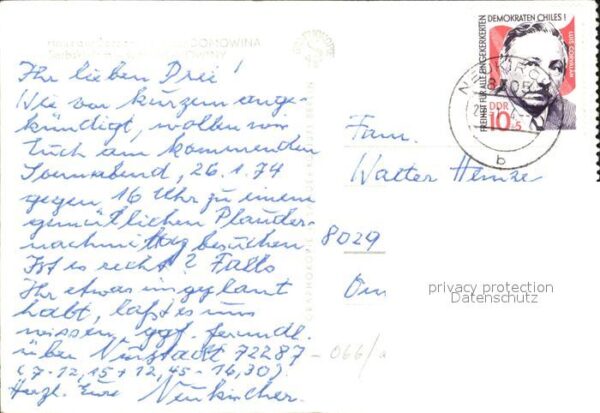 DOMOWINA
Ihr lieben Drei!
Wie vor kurzem ange-
kündigt, wollen wir
Euch am kommenden
Sonnabend, 26.1.74
gegen 16 Uhr zu einem
gemütlichen Plauder-
nachmittag besuchen.
Ist es recht? Falls
Ihr etwas eingeplant
habt, laßt es uns
wissen, ggf. fernmdl.
über Neustadt 72287 - 066/a
(7-12,15 + 12,45 - 16,30)!
Herzl. Eure Neukircher.
FREIHEIT FÜR ALLE EINGEKERKERTEN
DEMOKRATEN CHILES!
LUIS CORVALAN
DDR
10+5
NEUKIRCH
b
Fam.
Walter Heinze
8029
privacy protection
Datenschutz